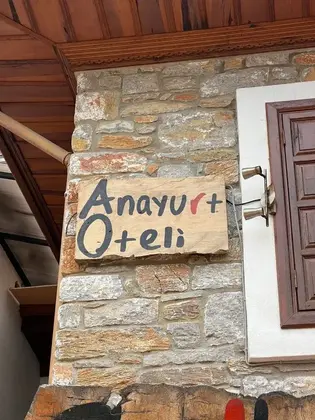 Anayurt
Oteli